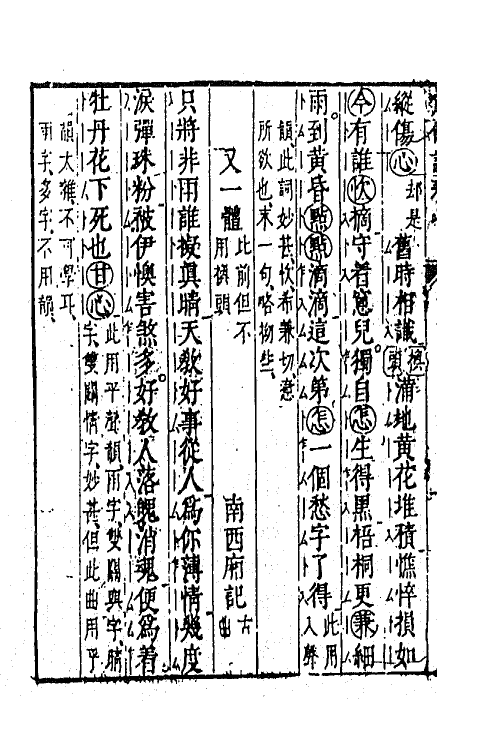 縱傷心却是舊時相識換頭滿地黃花堆積憔悴損如
今有誰忺摘守着窓兒獨自怎生得黑梧桐更兼細
雨到黃昏點點滴滴這次第怎一個愁字了得此用入聲
韻此詞妙甚忺希兼切意
所欲也末一句略拗些
又一體此前但不用換頭 南西廂記古曲
只將非雨誰擬真晴天教好事從人爲你薄情幾度
淚彈珠粉被伊懊害煞多好教人落魄消魂便爲着
牡丹花下死也甘心此用平聲韻雨字雙關與字晴
字雙關情字妙甚但此曲用平
韻太雜不可學耳
雨字多字不用韻